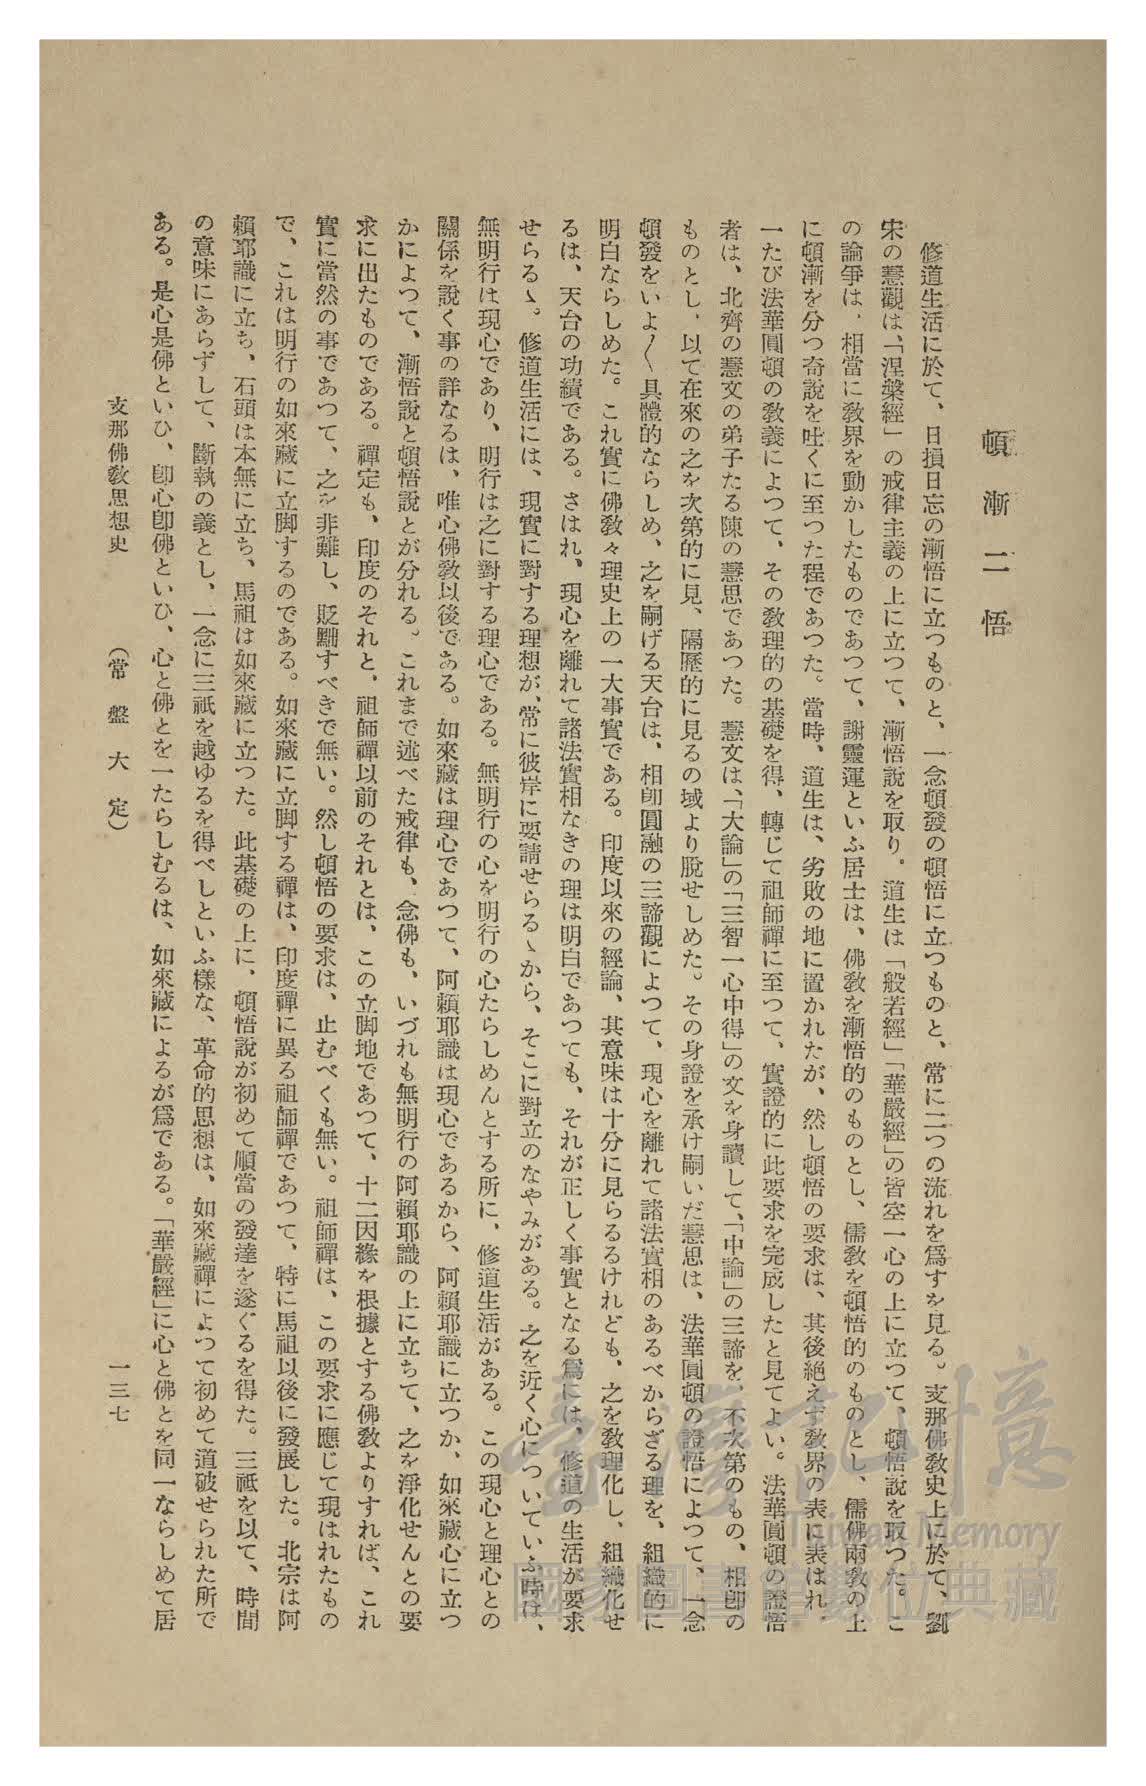 頓漸二悟
修道生活に於て、日損日忘の漸悟に立つものと、一念頓發の頓悟に立つものと、常に二つの流れを爲すを見る。支那佛敎史上に於て、劉
宋の慧觀は、「涅槃經」の戒律主義の上に立つて、漸悟說を取り。道生は「般若經」「華嚴經」の皆空一心の上に立つて、頓悟說を取つた。こ
の論爭は、相當に敎界を動かしたものであつて、謝靈運といふ居士は、佛敎を漸悟的のものとし、儒敎を頓悟的のものとし、儒佛兩敎の上
に頓漸を分つ奇說を吐くに至つた程であつた。當時、道生は、劣敗の地に置かれたが、然し頓悟の要求は、其後絕えず敎界の表に表はれ、
一たび法華圓頓の敎義によつて、その敎理的の基礎を得、轉じて祖師禪に至つて、實證的に此要求を完成したと見てよい。法華圓頓の證悟
者は、北齊の慧文の弟子たる陳の慧思であつた。慧文は、「大論」の「三智一心中得」の文を身讀して、「中論」の三諦を、不次第のもの、相卽の
ものとし、以て在來の之を次第的に見、隔歷的に見るの域より脫せしめた。その身證を承け嗣いだ慧思は、法華圓頓の證悟によつて、一念
頓發をいよ〱具體的ならしめ、之を嗣げる天台は、相卽圓融の三諦觀によつて、現心を離れて諸法實相のあるべからざる理を、組織的に
明白ならしめた。これ實に佛敎々理史上の一大事實である。印度以來の經論、其意味は十分に見らるるけれども、之を敎理化し、組織化せ
るは、天台の功績である。さはれ、現心を離れて諸法實相なきの理は明白であつても、それが正しく事實となる爲には、修道の生活が要求
せらるゝ。修道生活には、現實に對する理想が、常に彼岸に要請せらるゝから、そこに對立のなやみがある。之を近く心についていふ時は、
無明行は現心であり、明行は之に對する理心である。無明行の心を明行の心たらしめんとする所に、修道生活がある。この現心と理心との
關係を說く事の詳なるは、唯心佛敎以後である。如來藏は理心であつて、阿賴耶識は現心であるから、阿賴耶識に立つか、如來藏心に立つ
かによつて、漸悟說と頓悟說とが分れる。これまで述べた戒律も、念佛も、いづれも無明行の阿賴耶識の上に立ちて、之を淨化せんとの要
求に出たものである。禪定も、印度のそれと、祖師禪以前のそれとは、この立脚地であつて、十二因緣を根據とする佛敎よりすれば、これ
實に當然の事であつて、之を非難し、貶黜すべきで無い。然し頓悟の要求は、止むべくも無い。祖師禪は、この要求に應じて現はれたもの
で、これは明行の如來藏に立脚するのである。如來藏に立脚する禪は、印度禪に異る祖師禪であつて、特に馬祖以後に發展した。北宗は阿
賴耶識に立ち、石頭は本無に立ち、馬祖は如來藏に立つた。此基礎の上に、頓悟說が初めて順當の發達を遂ぐるを得た。三祇を以て、時間
の意味にあらずして、斷執の義とし、一念に三祇を越ゆるを得べしといふ樣な、革命的思想は、如來藏禪によつて初めて道破せられた所で
ある。是心是佛といひ、卽心卽佛といひ、心と佛とを一たらしむるは、如來藏によるが爲である。「華嚴經」に心と佛とを同一ならしめて居
支那佛敎思想史 (常盤大定) 一三七
臺灣記憶
Taiwan Memory
國家圖書館數位典藏